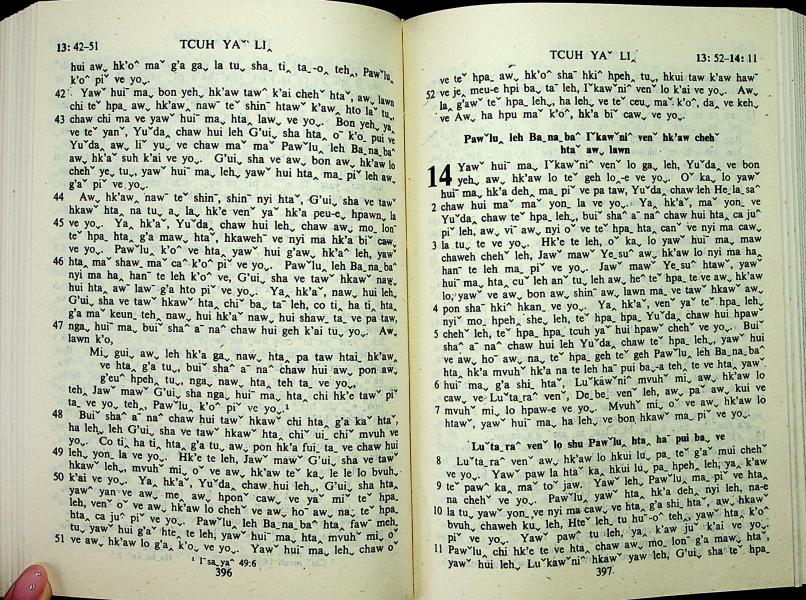 13: 42-51
TCUH YAˇ LIꞈ
hui awˬ hk'oˆ maˇ g'a gaˬ la tuˬ, sha_ tiꞈ ta_-oꞈ tehꞈ, Pawˇluꞈ
k'oꞈ piˇ ve yoˬ.
42 Yawˇ huiˉ ma_ bon yehˬ hk'aw tawˆ k'ai chehˇ htaˇ, awˬ lawn
chi teˇ hpaꞈ awˬ hk'awꞈ nawˉ teˇ shinˉ htawˇ k'awꞈ hto laˇ tuˬ,
43 chaw chi ma ve yawˇ huiˉ maꞈ htaꞈ lawˬ ve yoˬ. Bon yehˬ yaꞈ
ve teˇ yanˇ, Yuˇda_ chaw hui leh G'uiˬ sha htaꞈ oˉ k'oꞈ pui ve
Yuˇda_ awˬ liˇ yuˬ ve chaw ma_ maˇ Pawˇluꞈ leh Ba_na_baˆ
awˬ hk'aˇ suh k'ai ve yoˬ. G'uiˬ sha ve awˬ bon awˬ hk'aw lo
chehˇ yeˬ tuˬ, yawˇ huiˉ ma_ leh, yawˇ hui htaꞈ maꞈ piˇ leh awˬ
g'aˇ piˇ ve yoˬ.
44 Awˬ hk'awꞈ nawˉ teˇ shinˉ, shinˉ nyi htaˇ, G'uiˬ sha ve tawˇ
hkawˇ htaꞈ na tuˬ aˬ laꞈ hk'e venˇ yaˇ hk'a peu-eˬ hpawnꞈ la
45 ve yoˬ. Ya_ hk'aˇ, Yuˇda_ chaw hui leh, chaw awˬ mo_ lonˉ
teˇ hpaꞈ htaꞈ g'a mawꞈ htaˇ, hkawehˉ ve nyi ma hk'a biˇ cawꞈ
ve yoˬ. Pawˇluꞈ k'oˆ ve htaꞈ yawˇ hui g'awꞈ hk'aˆ leh, yawˇ
46 htaꞈ maˇ shaw_ maˇ caˆ k'oˆ piˇ ve yoˬ. Pawˇluꞈ leh Ba_na_baˆ
nyi ma haꞈ hanˉ te leh k'oˆ ve, G'uiˬ sha ve tawˇ hkawˇ nawꞈ
hui htaꞈ awˬ lawˆ g'a hto piˇ ve yoˬ. Ya_ hk'aˇ, nawꞈ hui leh,
G'uiˬ sha ve tawˇ hkawˇ htaꞈ chiˇ ba_ taˇ leh, co_ ti_ ha ti_ htaꞈ
g'a maˇ keun_ tehꞈ, nawꞈ hui hk'aˇ nawꞈ hui shaw_ ta_ ve pa taw,
47 ngaˬ hui_ ma_ buiˇ shaˆ aˉ naˆ chaw hui geh k'ai tuˬ yoˬ. Awˬ
lawnˆ k'o,
Mi_ gui_ awˬ leh hk'a gaꞈ nawꞈ htaꞈ pa taw htai_ hk'awꞈ
ve htaꞈ g'a tuˬ, buiˇ shaˆ aˉ naˆ chaw hui awˬ pon awˬ
g'euˆ hpehˬ tuˬ, ngaˬ nawꞈ htaꞈ teh ta_ ve yoˬ,
tehꞈ Jawˇ mawˇ G'uiˬ sha ngaˬ huiˉ ma_ htaꞈ chi hk'e tawˇ piˇ
ta_ ve yoˬ tehꞈ, Pawˇluꞈ k'oˆ piˇ ve yoˬ.¹
48 Buiˇ shaˆ aˉ naˆ chaw hui tawˇ hkawˇ chi htaꞈ g'a kaˇ htaˇ,
ha leh_ leh G'uiˬ sha ve tawˇ hkawˇ htaꞈ chiˇ ui_ chiˇ mvuh ve
yoˬ. Co_ ti_ ha ti_ htaꞈ g'a tuˬ awˬ pon hk'a fui_ taꞈ ve chaw hui
49 lehꞈ, yonˬ la ve yoˬ. Hk'e te leh, Jawˇ mawˇ G'uiˬ sha ve tawˇ
hkawˇ lehꞈ, mvuhˇ miˬ oˇ ve awˬ hk'aw te kaˬ le le lo bvuh_
50 k'ai ve yoˬ. Ya_ hk'aˇ, Yuˇda_ chaw hui lehꞈ, G'uiˬ sha htaꞈ
yawˆ yan ve awˬ meꞈ awˬ hpon cawꞈ ve yaˇ miˇ teˇ hpaꞈ
leh, venˇ oˇ ve awˬ hk'aw lo chehˇ ve awˬ hoˉ awˬ naꞈ teˇ hpaꞈ
htaꞈ caꞈ juˆ piˇ ve yoˬ. Pawˇluꞈ leh Ba_na_baˆ htaꞈ faw_ meh
tuˬ, yawˇ hui g'aˇ hk'e te leh, yawˇ huiˉ ma_ htaꞈ mvuhˇ miˬ oˇ
51 ve awˬ hk'aw lo g'aꞈ k'oꞈ ve yoˬ. Yawˇ huiˉ ma_ leh, chaw oˇ
¹ Iˇsa_ya_ˆ 49:6
396
TCUH YAˇ LIꞈ
13: 52-14: 11
ve teˇ hpaꞈ awˬ hk'oˆ shaˉ hkiˆ hpehˬ tuˬ, hkui taw k'aw hawˉ
52 ve jeꞈ meu-e hpi ba_ taˇ leh, Iˇkaw_niˆ venˇ lo k'ai ve yoˬ. Awˬ
laꞈ g'awˆ teˇ hpaꞈ lehꞈ, ha lehꞈ ve teˇ ceuˬ maˇ k'oˆ, daꞈ ve kehꞈ
ve Awˬ ha hpu maˇ k'oˆ, hk'a biˇ cawꞈ ve yoˬ.
Pawˇluꞈ leh Ba_na_baˆ Iˇkaw_niˆ venˇ hk'aw chehˇ
htaˇ awˬ lawn
14 Yawˇ huiˉ ma_ Iˇkaw_niˆ venˇ lo ga_ leh, Yuˇda_ ve bon
yehꞈ awˬ hk'aw lo teˇ geh lo_-e ve yoˬ. Oˇ ka_ lo yawˇ
huiˉ ma_ hk'a dehꞈ maꞈ pi ve pa taw, Yuˇda_ chaw leh He_la_saˆ
2 chaw hui maˇ maˇ yonˬ la ve yoˬ. Ya_ hk'aˇ, maˇ yonˬ ve
Yuˇda_ chaw teˇ hpaꞈ lehꞈ, buiˇ shaˆ aˉ naˆ chaw hui htaꞈ ca juˆ
piˇ leh, awˬ viˉ awˬ nyi oˇ ve teˇ hpaꞈ htaꞈ canˇ ve nyi ma cawꞈ
3 la tuˬ te ve yoˬ. Hk'e te leh, oˇ ka_ lo yawˇ huiˉ ma_ maw
chaweh chehˇ leh, Jawˇ mawˇ Ye_suˆ awˬ hk'aw lo nyi ma haꞈ
hanˉ te leh maꞈ piˇ ve yoˬ. Jawˇ mawˇ Ye_suˆ htawˇ, yawˇ
huiˉ ma_ htaꞈ cuˇ leh anˇ tuˬ leh awˬ heˆ teˇ hpaꞈ te ve awˬ hk'aw
lo, yawˇ ve awˬ bon awˬ shinˉ awˬ lawn ma_ ve tawˇ hkawˇ awˬ
4 pon sha hkiˆ hkanꞈ ve yoˬ. Ya_ hk'aˇ, venˇ yaˇ teˇ hpaꞈ leh,
nyiˇ mo_ hpehˬ sheˬ leh, teˇ hpaꞈ hpaꞈ Yuˇda_ chaw hui hpawˇ
5 chehˇ leh, teˇ hpaꞈ hpaꞈ tcuh yaˇ hui hpawˇ chehˇ ve yoˬ. Buiˇ
shaˆ aˉ naˆ chaw hui leh Yuˇda_ chaw teˇ hpaꞈ leh, yawˇ hui
ve awˬ hoˉ awˬ naꞈ teˇ hpaꞈ geh teˇ geh Pawˇluꞈ leh Ba_na_baˆ
htaꞈ hk'a mvuhˇ hk'a na te leh haˇ pui ba_-a teh_ te ve hta yawˇ
6 huiˉ ma_ g'a shi_ htaˇ, Luˇkaw_niˆ mvuhˇ miˬ awˬ hk'aw lo
cawꞈ ve Luˇta_raˆ venˇ, De_be_ venˇ leh, awˬ paˇ awˬ kui ve
7 mvuhˇ miˬ lo hpaw-e ve yoˬ. Mvuhˇ miˬ oˇ ve awˬ hk'aw lo
htawˇ, yawˇ huiˉ ma_ ha leh_ ve bon hkawˇ maꞈ piˇ ve yoˬ.
Luˇta_raˆ venˇ lo shu Pawˇluꞈ htaꞈ haˆ pui ba_ ve
8 Luˇta_raˆ venˇ awˬ hk'aw lo hkui luꞈ pa_ teˇ g'aˇ mui chehˇ
ve yoˬ. Yawˇ paw la htaˇ kaꞈ hkui luꞈ pa_ hpehˬ leh, yaꞈ k'aw
9 teˇ pawˆ kaꞈ maˇ toˆ jaw. Yawˇ leh, Pawˇluꞈ maꞈ piˇ ve htaꞈ
na chehˇ ve yoˬ. Pawˇluꞈ yawˇ htaꞈ hk'a dehˬ nyi leh, na-e
10 la tuˬ yawˇ yonˬ ve nyi ma cawꞈ ve htaꞈ g'a shi_ htaˇ, awˬ hkawˇ
bvuhꞈ chaweh kuˬ leh, Hteˇ leh_ tu hu-oˆ tehꞈ, yawˇ htaꞈ k'oˆ
piˇ ve yoˬ. Yawˇ pawˆ tu leh, yaꞈ k'aw juˆ k'ai ve yoˬ.
11 Pawˇluꞈ chi hk'e te ve htaꞈ chaw awˬ mo_ lonˉ g'a mawꞈ htaˇ,
yawˇ hui leh, Luˇkaw_niˆ hkawˇ yaw leh, G'uiˬ shaˉ teˇ hpaꞈ
397